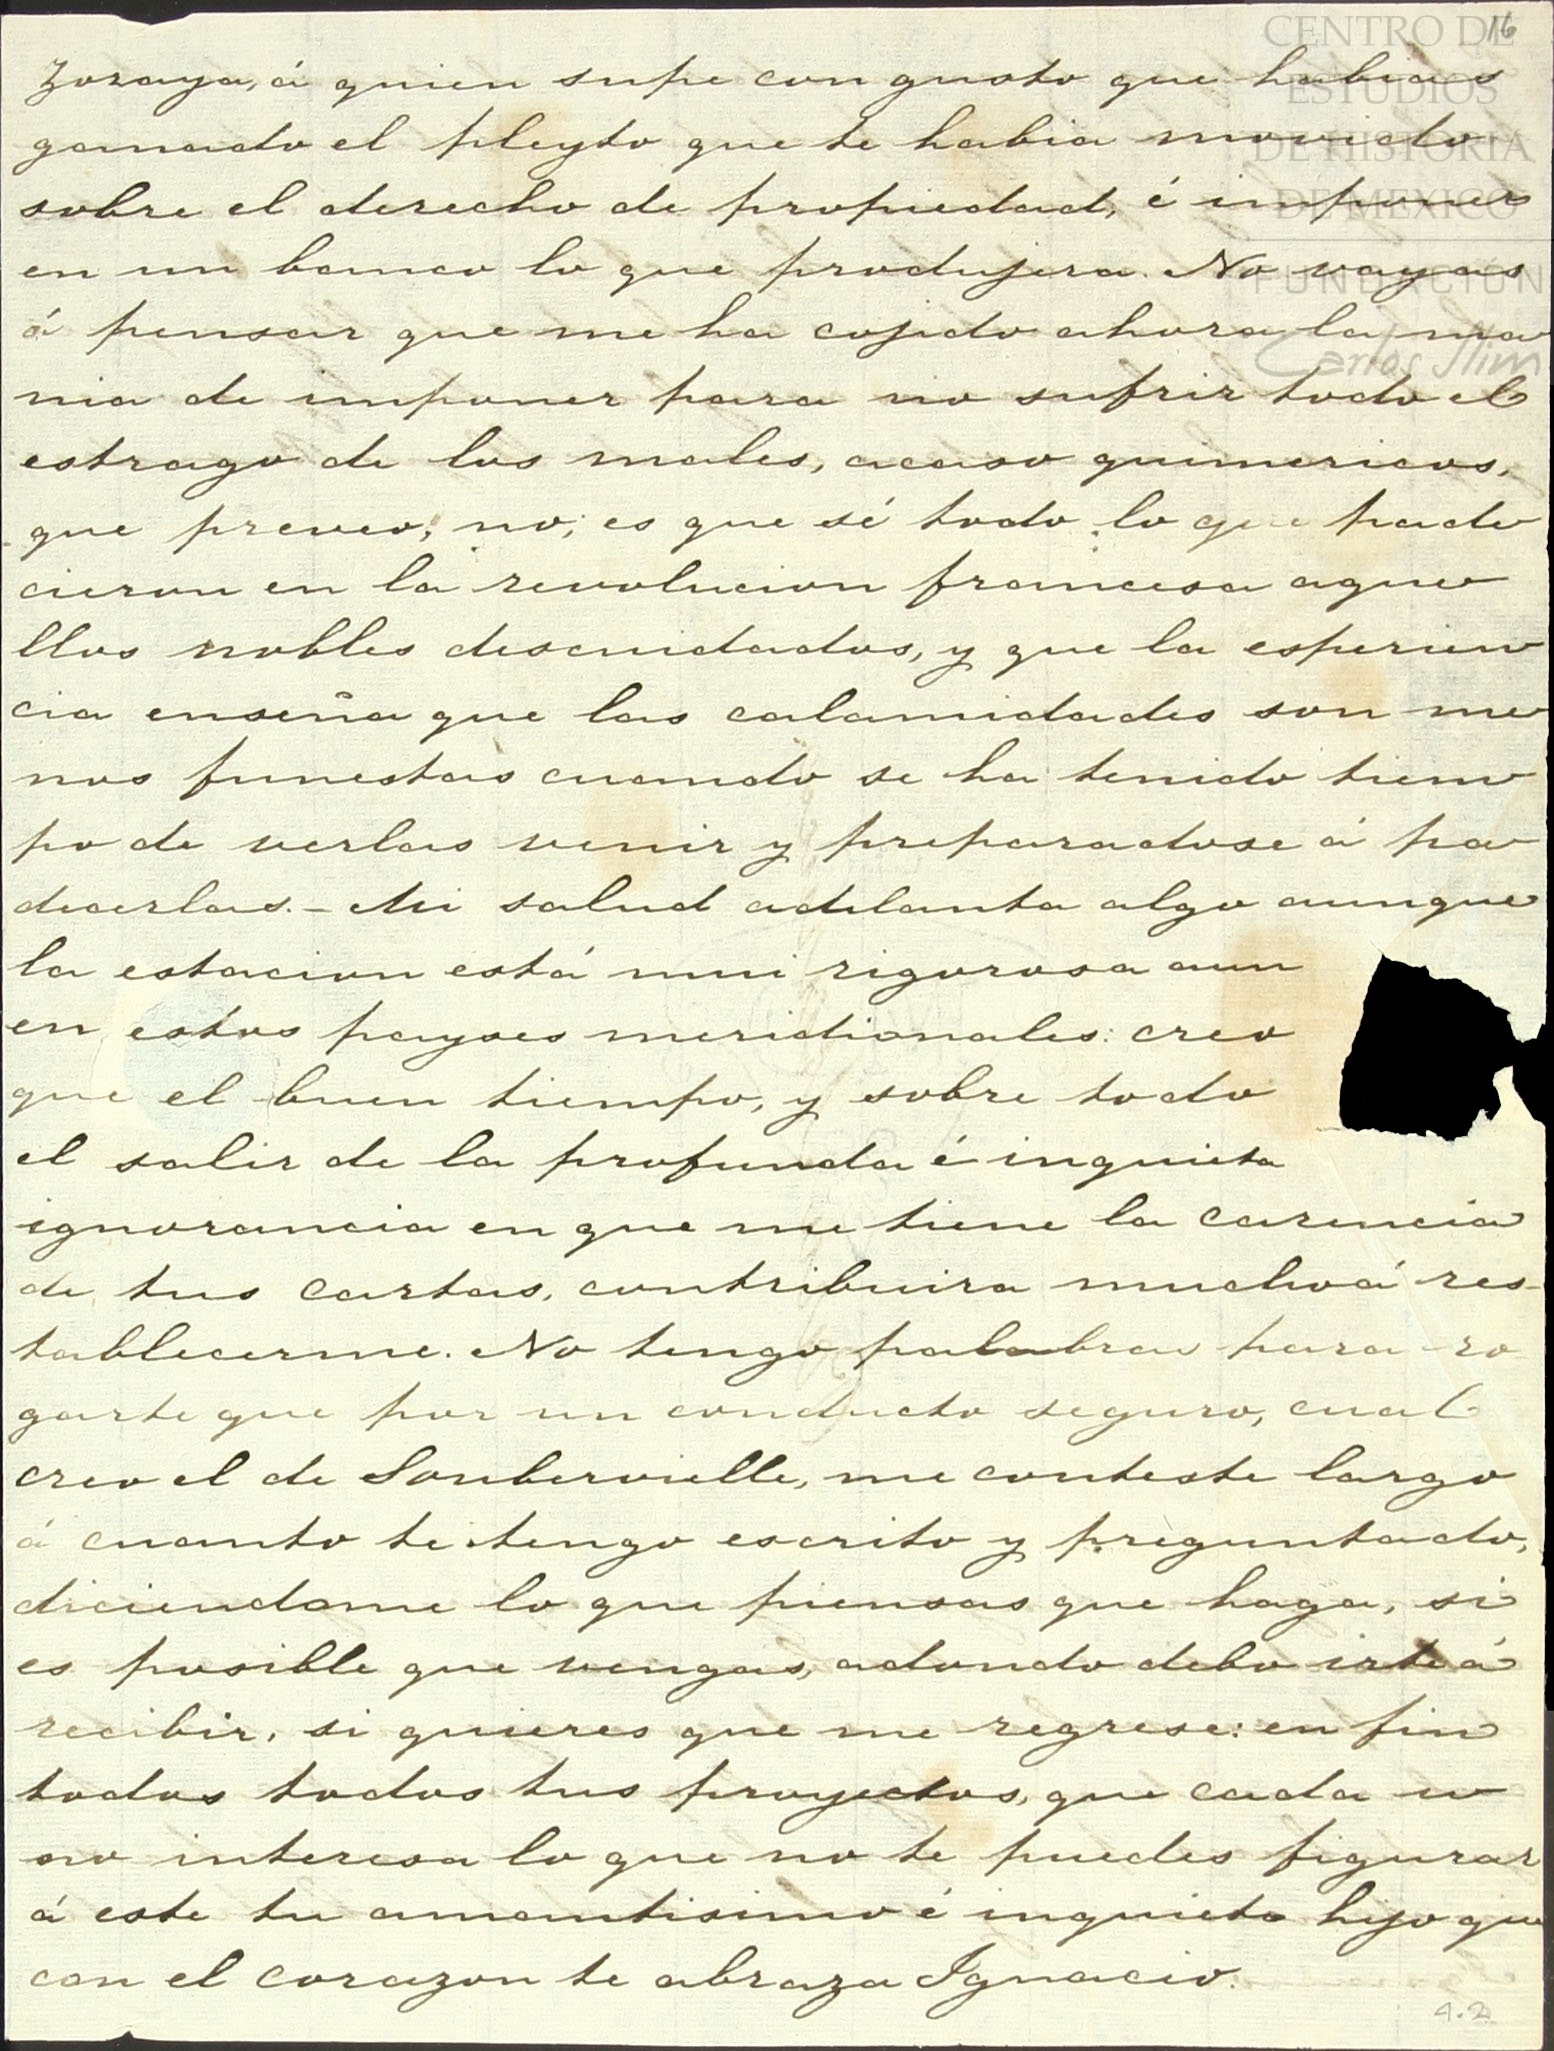 16
CENTRO DE
ESTUDIOS
DE HISTORIA
DE MEXICO
FUNDACIÓN
Carlos Slim
Zozaya, á quien supe con gusto que habias
ganado el pleyto que te habia movido
sobre el derecho de propiedad, é imponer
en un banco lo que produjera. No vayas
á pensar que me ha cojido ahora la ma
nia de imponer para no sufrir todo el
estrago de los males, acaso quimericos,
que preveo; no; es que sé todo lo que pade
cieron en la revolucion francesa aque
llos nobles descuidados, y que la esperien
cia enseña que las calamidades son me
nos funestas cuando se ha tenido tiem
po de verlas venir y preparadose á pa
decerlas. - Mi salud adelanta algo aunque
la estacion está mui rigorosa aun
en estos payses meridionales: creo
que el buen tiempo, y sobre todo
el salir de la profunda é inquieta
ignorancia en que me tiene la carencia
de tus cartas, contribuira mucho á res-
tablecerme. No tengo palabras para ro
garte que por un conducto seguro, cual
creo el de Soubervielle, me conteste largo
á cuanto te tengo escrito y preguntado,
diciendome lo que piensas que haga, si
es posible que vengas, adondo debo irte á
recibir, si quieres que me regrese: en fin
todos todos tus proyectos, que cada u
no interesa lo que no te puedes figurar
á este tu amantisimo é inquieto hijo que
con el corazon te abraza Ignacio.
4.2